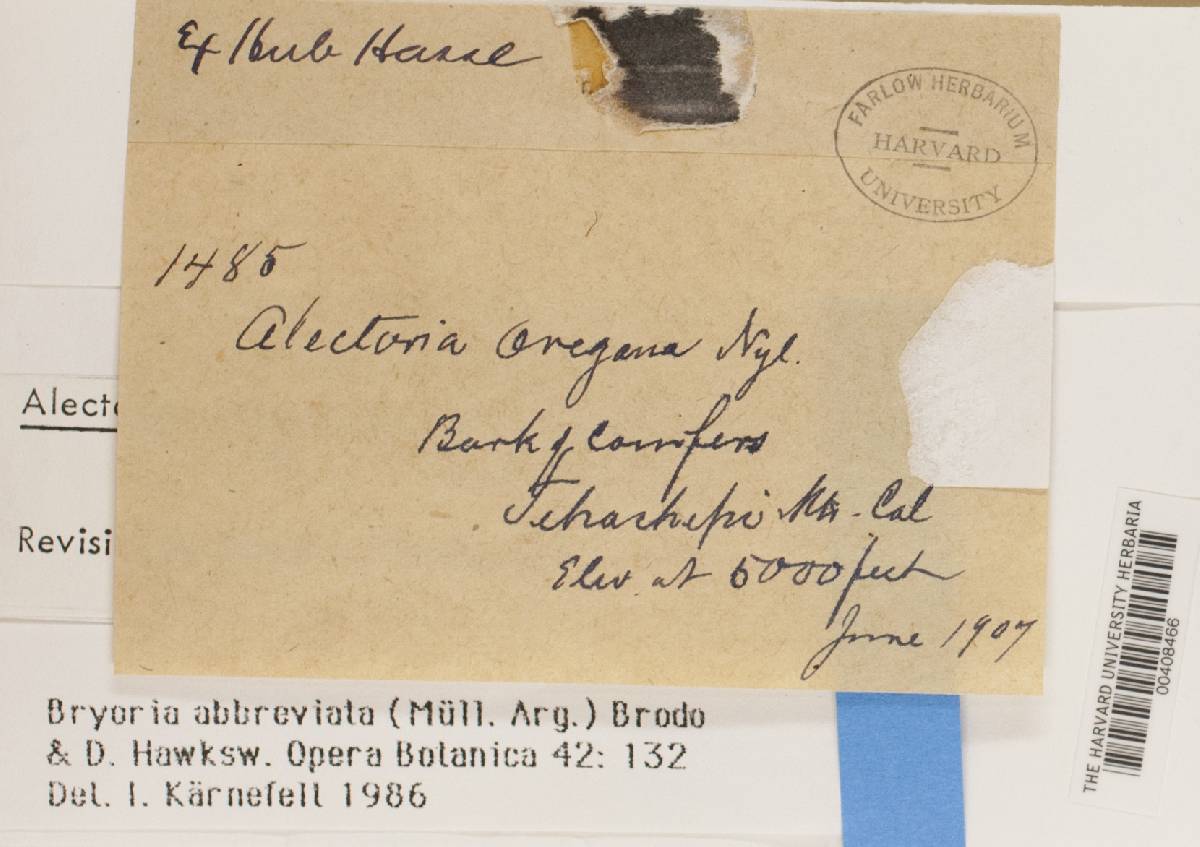 Ex Herb Hasse
FARLOW HERBARIUM
HARVARD
UNIVERSITY
1485
Alectoria Oregana Nyl.
Bark of Conifers
Tehachepi Mts. Cal
Elev. at 5000 feet
June 1907
Alecto
Revisi
Bryoria abbreviata (Müll. Arg.) Brodo
& D. Hawksw. Opera Botanica 42: 132
Det. I. Kärnefelt 1986
THE HARVARD UNIVERSITY HERBARIA
00408466